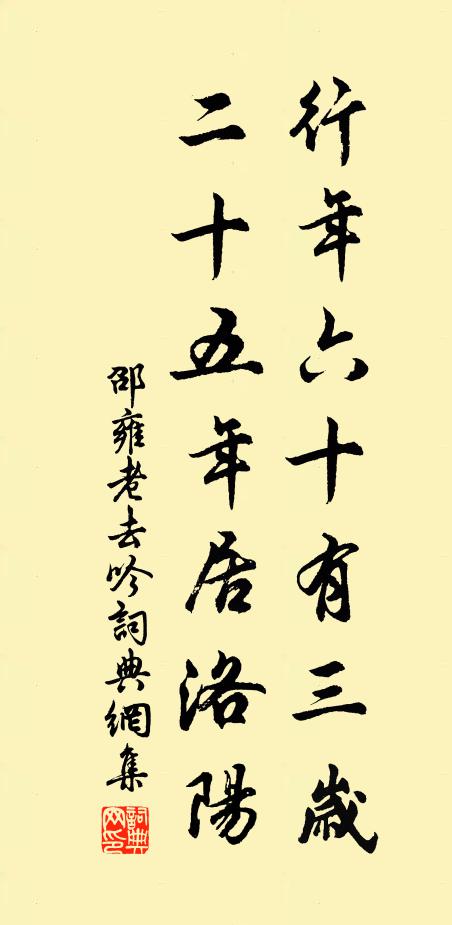 行年六十有三歲
二十五年居洛陽
邵雍老去吟詞典網集
詞典網印